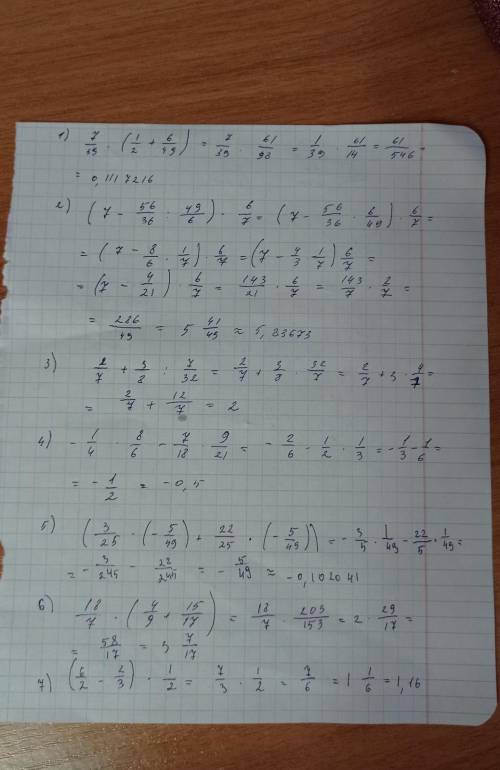 1) 7/39 · (1/2 + 6/49) = 7/39 · 61/98 = 1/39 · 61/14 = 61/546 =
= 0,1117216
2) (7 - 56/36 : 49/6) · 6/7 = (7 - 56/36 · 6/49) · 6/7 =
= (7 - 8/6 · 1/7) · 6/7 = (7 - 4/3 · 1/7) 6/7 =
= (7 - 4/21) · 6/7 = 143/21 · 6/7 = 143/7 · 2/7 =
= 286/49 = 5 41/49 ≈ 5,83673
3) 2/7 + 3/8 : 7/32 = 2/7 + 3/8 · 32/7 = 2/7 + 3 · 4/7 =
= 2/7 + 12/7 = 2
4) - 1/4 · 8/6 - 7/18 · 9/21 = - 2/6 - 1/2 · 1/3 = - 1/3 - 1/6 =
= - 1/2 = - 0,5
5) (3/25 · (- 5/49) + 22/25 · (- 5/49)) = - 3/5 · 1/49 - 22/5 · 1/49 =
= - 3/245 - 22/245 = - 5/49 ≈ -0,102041
6) 18/7 · (4/9 + 15/17) = 18/7 · 203/153 = 2 · 29/17 =
= 58/17 = 3 7/17
7) (6/2 - 2/3) · 1/2 = 7/3 · 1/2 = 7/6 = 1 1/6 = 1,16